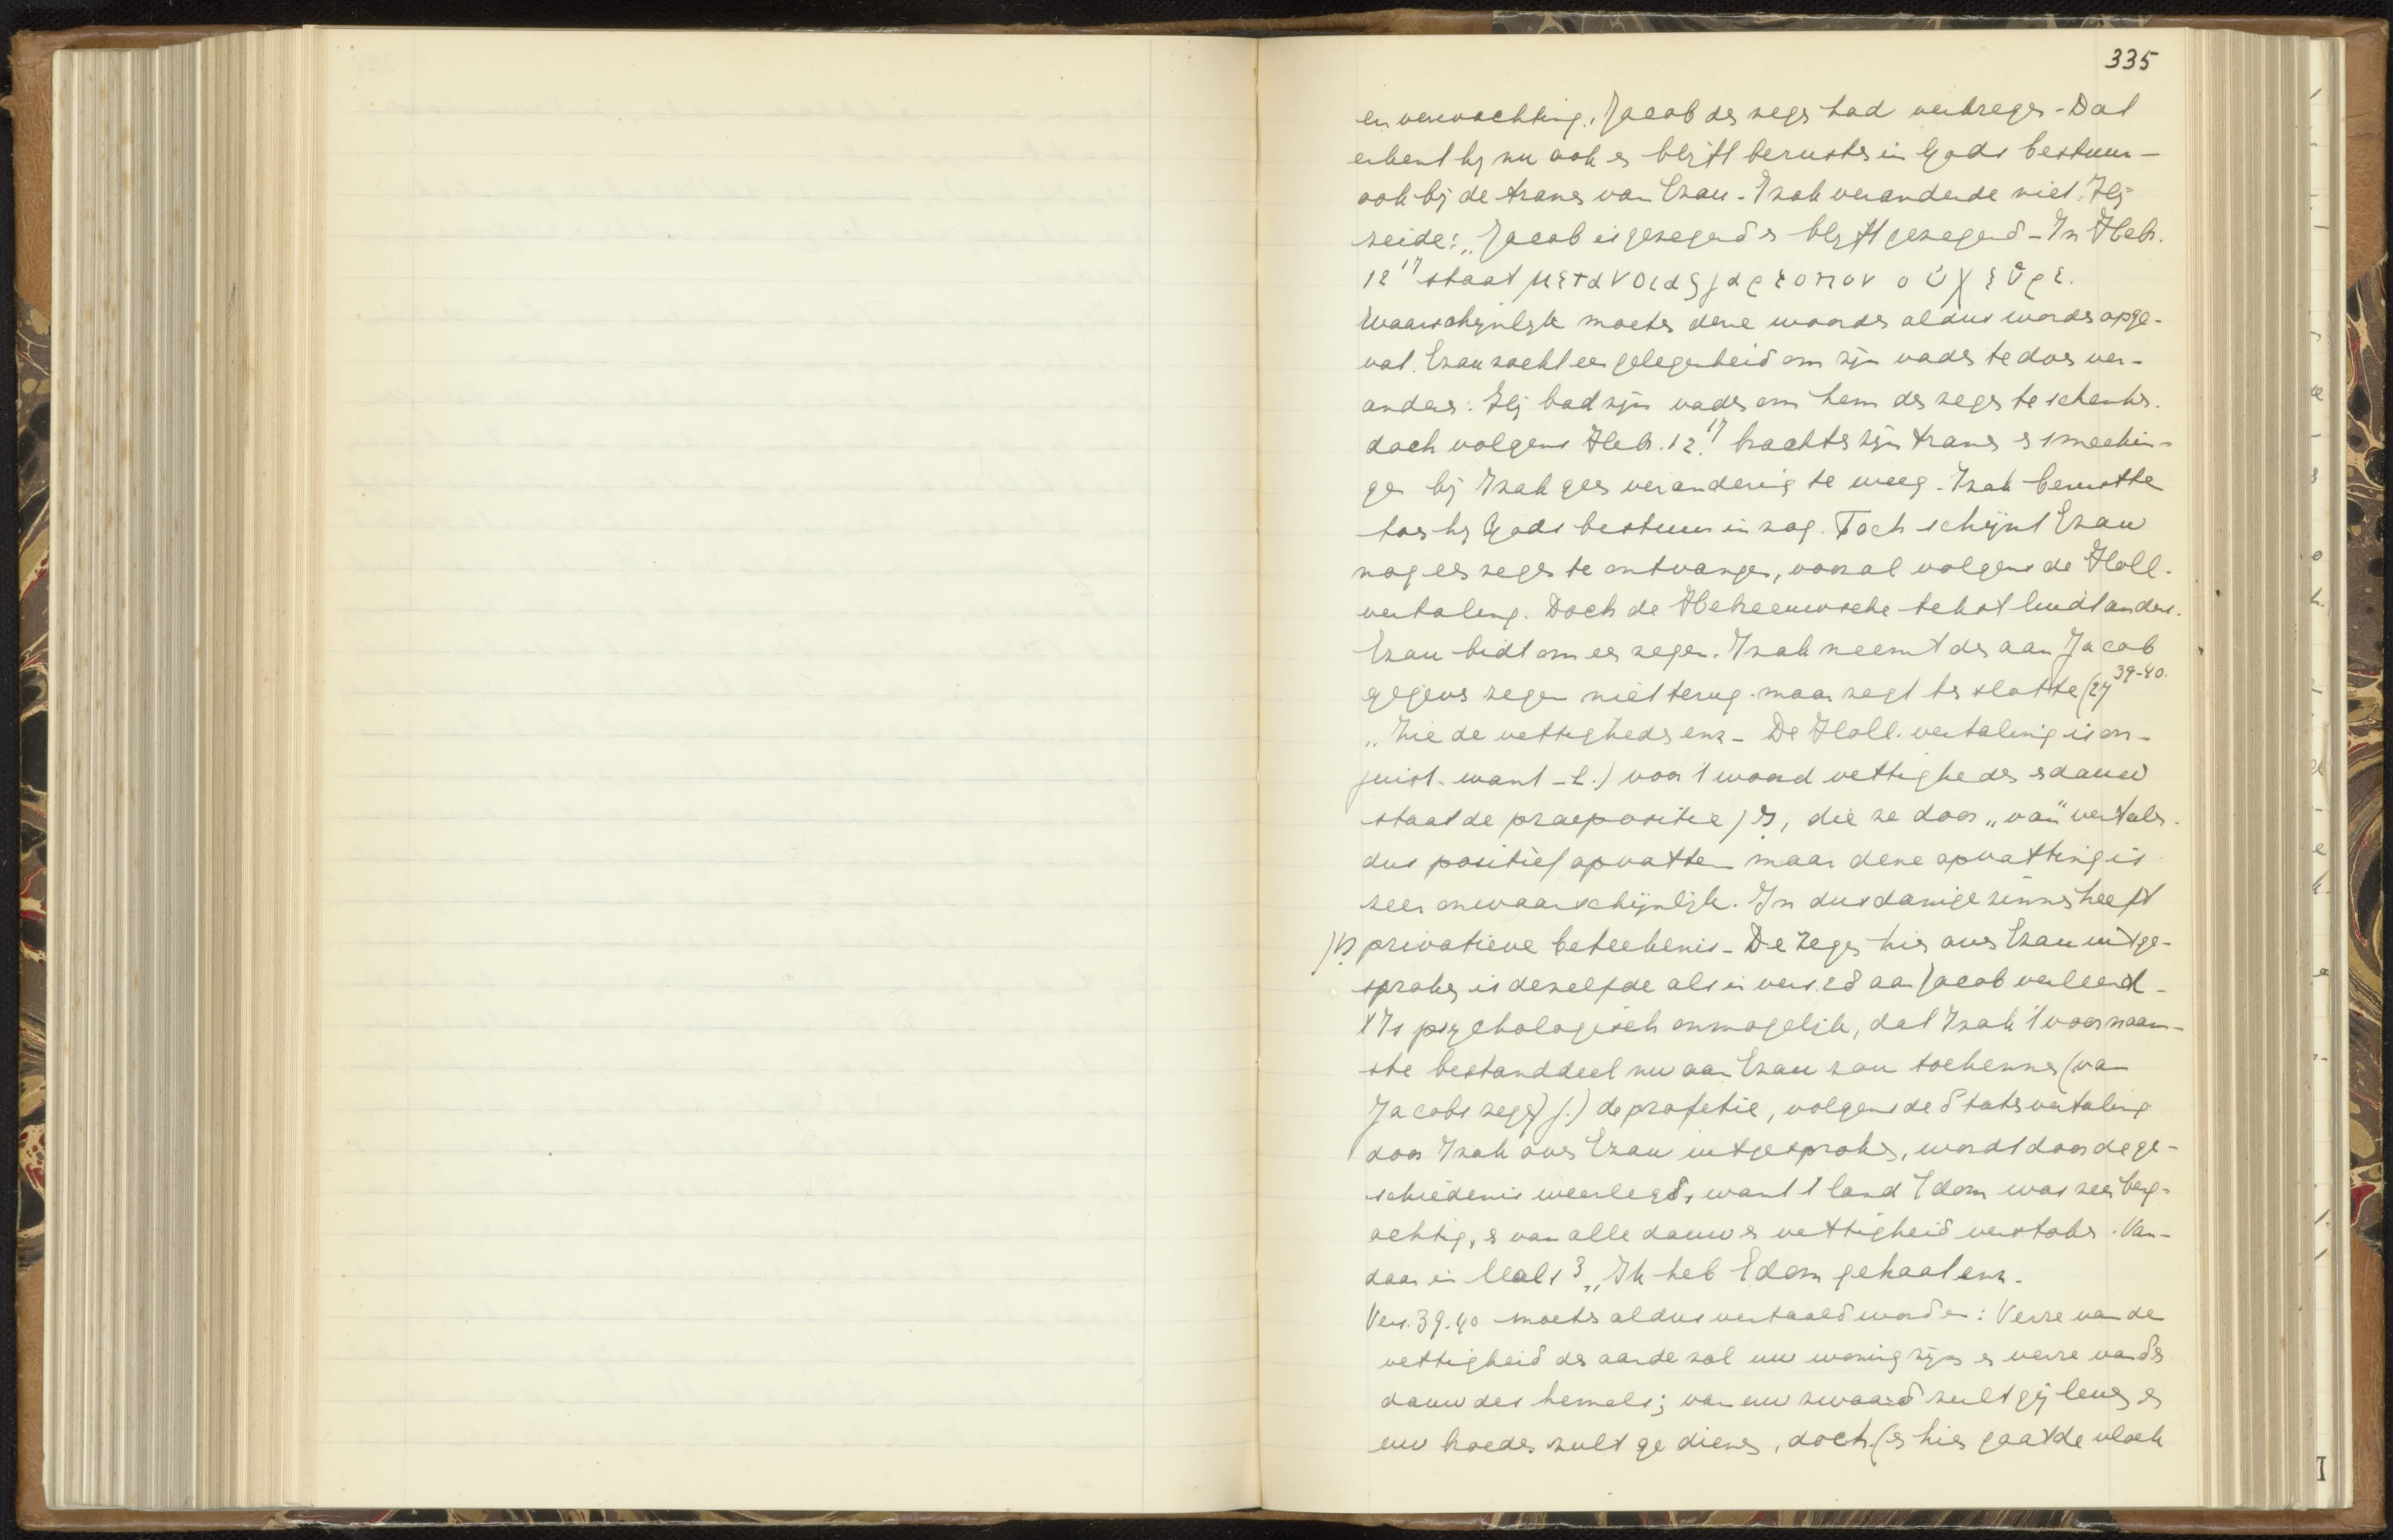 335
en verwachting, Jacob den zegen had verkregen - Dat
erkent hij nu ook en blijft berusten in Gods bestuur -
ook bij de tranen van Ezau - Izak veranderde niet. Hij
zeide: „Jacob is gezegend en blijft gezegend - In Hebr.
12 17 staat μετανοιας γαρ τοπον οὐχ εὗρε.
Waarschijnlijk moeten deze woorden aldus worden opge-
vat. Ezau zocht een gelegenheid om zijn vader te doen ver-
anderen: Hij bad zijn vader om hem den zegen te schenken.
doch volgens Hebr. 12. 17 brachten zijn tranen en smeekin-
gen bij Izak geen verandering te weeg. Izak berustte
toen hij Gods bestuur in zag. Toch schijnt Ezau
nog een zegen te ontvangen, vooral volgens de Holl.
vertaling. Doch de Hebreeuwsche tekst luidt anders.
Ezau bidt om een zegen. Izak neemt den aan Jacob
gegeven zegen niet terug. maar zegt ten slotte (27 39-40.
„Zie de vettigheden enz - De Holl. vertaling is on-
juist. want - 1.) voor 't woord vettigheden en dauw
staat de praepositie מִן, die ze door „van" vertalen.
dus positief opvatten maar deze opvatting is
zeer onwaarschijnlijk. In dusdanige zinnen heeft
מִן privatieve beteekenis - De zegen hier over Ezau uitge-
sproken is dezelfde als in vers 28 aan Jacob verleend -
't Is psychologisch onmogelijk, dat Izak 't voornaam-
ste bestanddeel nu aan Ezau zou toekennen (van
Jacobs zegen) 2.) de profetie, volgens de Statenvertaling
door Izak over Ezau uitgesproken, wordt door de ge-
schiedenis weerlegd, want 't land Edom was zeer berg-
achtig, en van alle dauw en vettigheid verstoken. Van-
daar in Mal. 1 3 „Ik heb Edom gehaat enz.
Vers. 39.40 moeten aldus vertaald worden: Verre van de
vettigheid der aarde zal uw woning zijn en verre van den
dauw des hemels; van uw zwaard zult gij leven en
uw broeder zult ge dienen, doch (en hier gaat de vloek